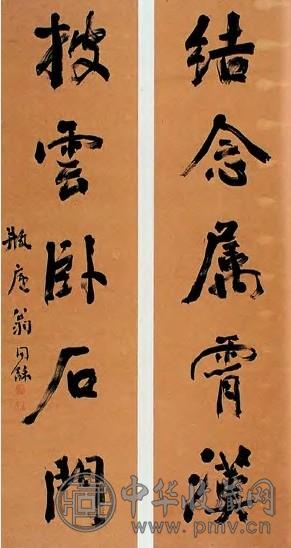 結念属霄漢
披雲卧石門
瓶廬翁同龢
中华收藏网
www.pmv.cn